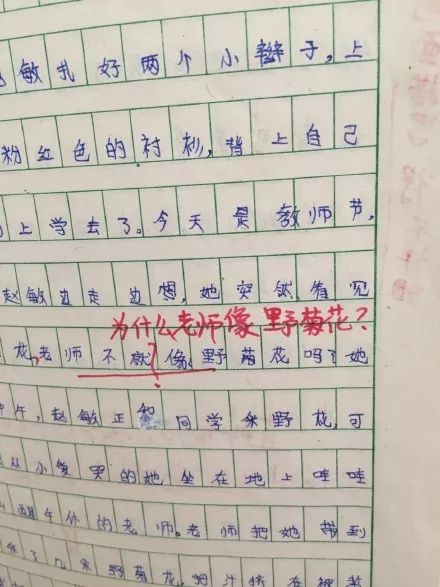 敏扎好两个小辫子,上
粉红色的衬衫,背上自己
上学去了。今天是教师节,
赵敏边走边想,她突然看见
为什么老师像野菊花?
花,老师不就像野菊花吗?她
?
中午,赵敏正和同学采野花,可
从小爱哭的她坐在地上哇哇
醒午休的老师。老师把她带到
了几朵野菊花,把汁挤在